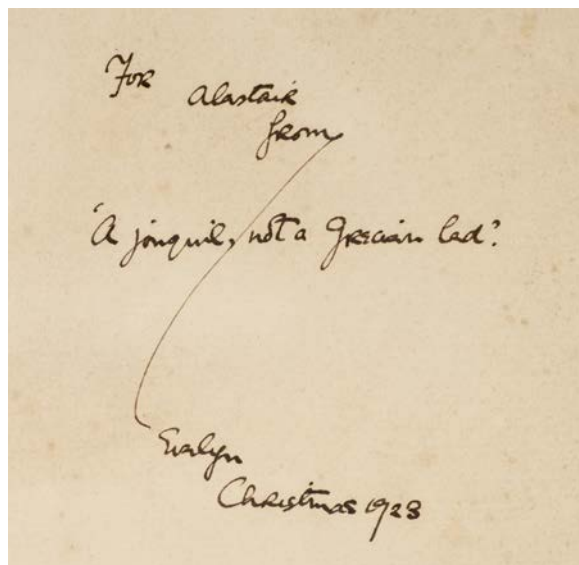 For
Alastair
from
'A jonquil, not a Grecian lad'.
Evelyn
Christmas 1923